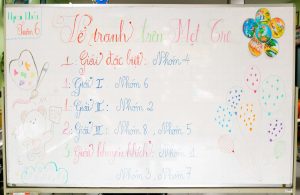 Vẽ tranh trên Mẹt Tre
Tuần 6
1. Giải đặc biệt: Nhóm 4
1. Giải I: Nhóm 6
1. Giải II: Nhóm 2
2. Giải III: Nhóm 8, Nhóm 5
3. Giải khuyến khích:
Nhóm 3, Nhóm 7